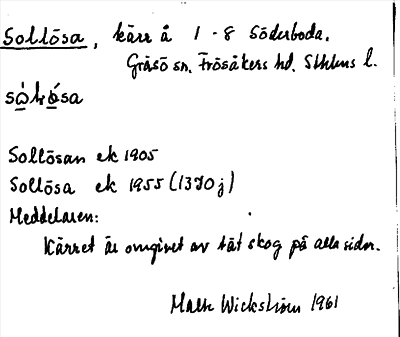 Sollösa, kärr å 1-8 Söderboda.
Gräsö sn. Frösåkers hd. Sthlms l.
Sollösan ek 1905
Sollösa ek 1955 (13I0j)
Meddelaren:
Kärret är omgivet av tät skog på alla sidor.
Wickström 1961